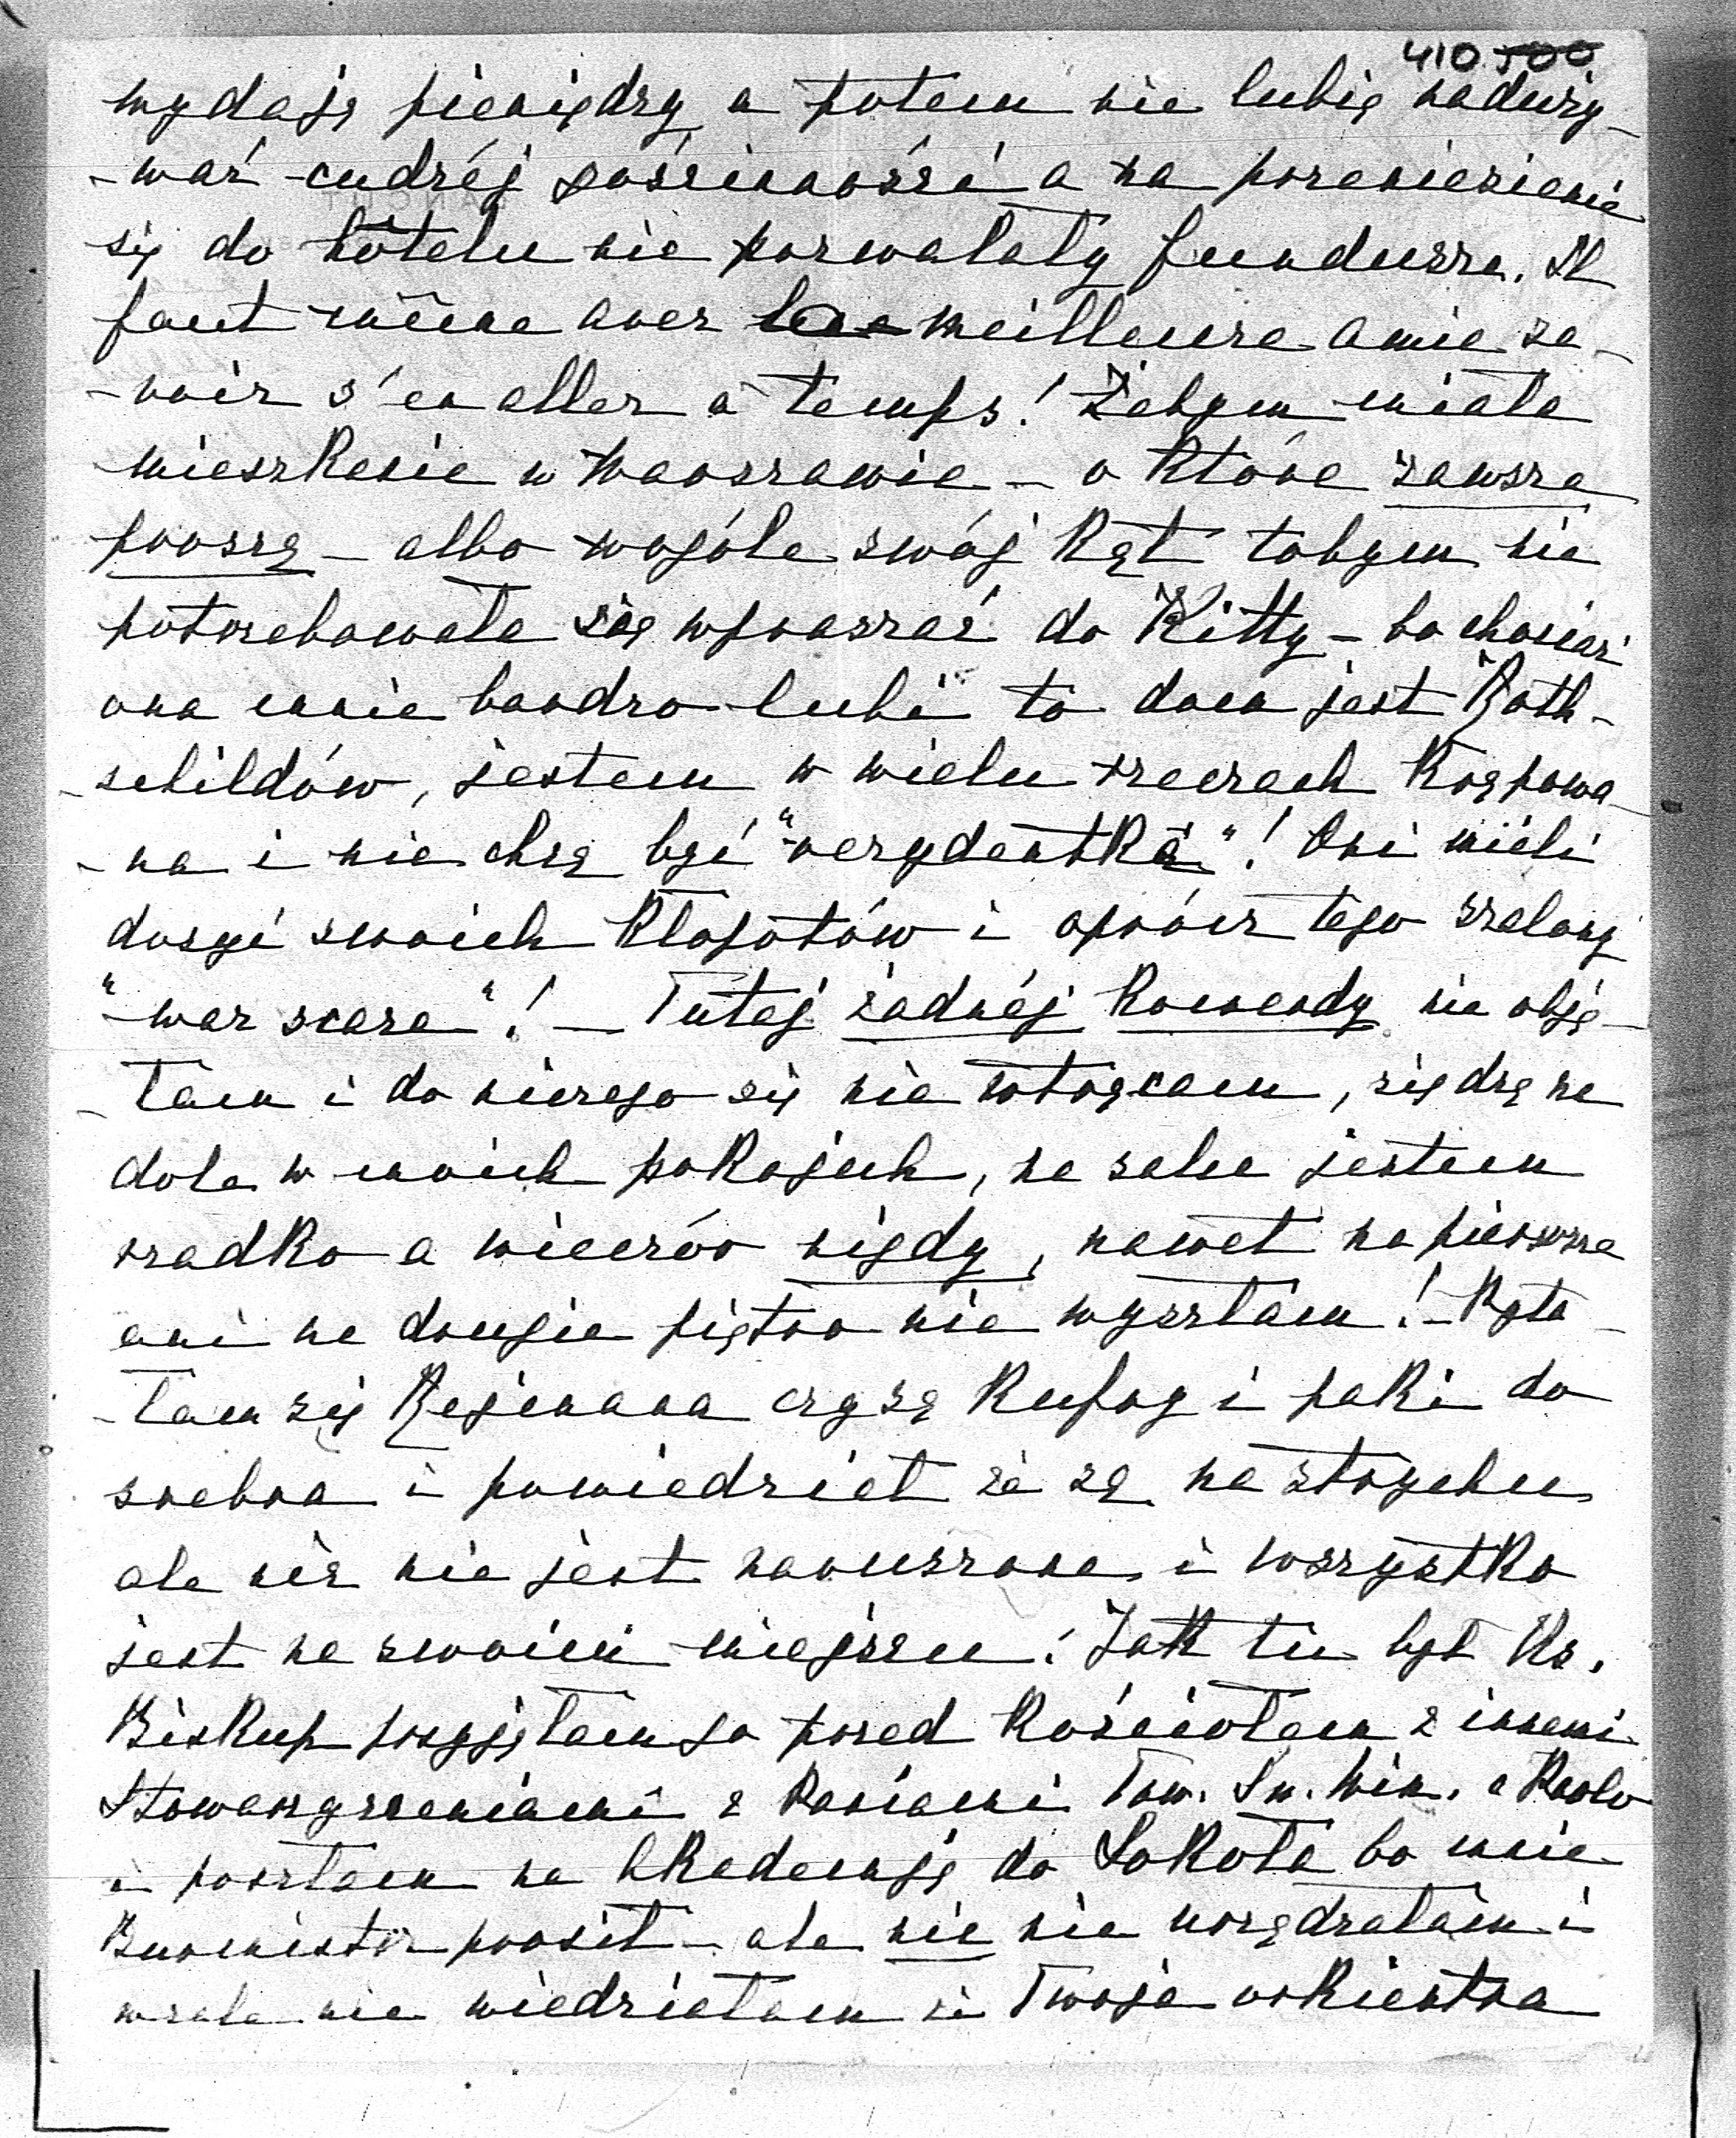 410 500
wydaję pieniędzy a potem nie lubię naduży-
-wać cudzéj gościnności a na przeniesienie
się do hôtelu nie pozwalały fundusze. Il
faut même avec la meilleure amie sa-
-voir s'en aller à temps! Żebym miała
mieszkanie w Warszawie – o które zawsze
proszę – albo wogóle swój kąt tobym nie
potrzebowała się wpraszać do Kitty – bo chociaż
ona mnie bardzo lubi to dom jest Roth-
-schildów, jestem w wielu rzeczach krępowa-
-na i nie chcę być "rezydentką"! Oni mieli
dosyć swoich kłopotów i oprócz tego szalony
"war scare"! – Tutaj żadnéj komendy nie obję-
-łam i do niczego się nie wtrącam, siędzę na
dole w moich pokojach, na sali jestem
rzadko a wieczór nigdy, nawet na pierwsze
ani na drugie piętro nie wyszłam! – Pyta-
-łam się Rejmana czy są kufry i paki do
srebra i powiedział że są na strychu
ale nic nie jest naruszone i wszystko
jest na swoim miejscu! Jak tu był Ks.
Biskup przyjęłam go przed kościołem z innemi
Stowarzyszeniami z Paniami Tow. Św. Win. a Paolo
i poszłam na Akademję do Sokoła bo mnie
Burmistrz prosił – ale nic nie urządzałam i
wcale nie wiedziałam że Twoja orkiestra